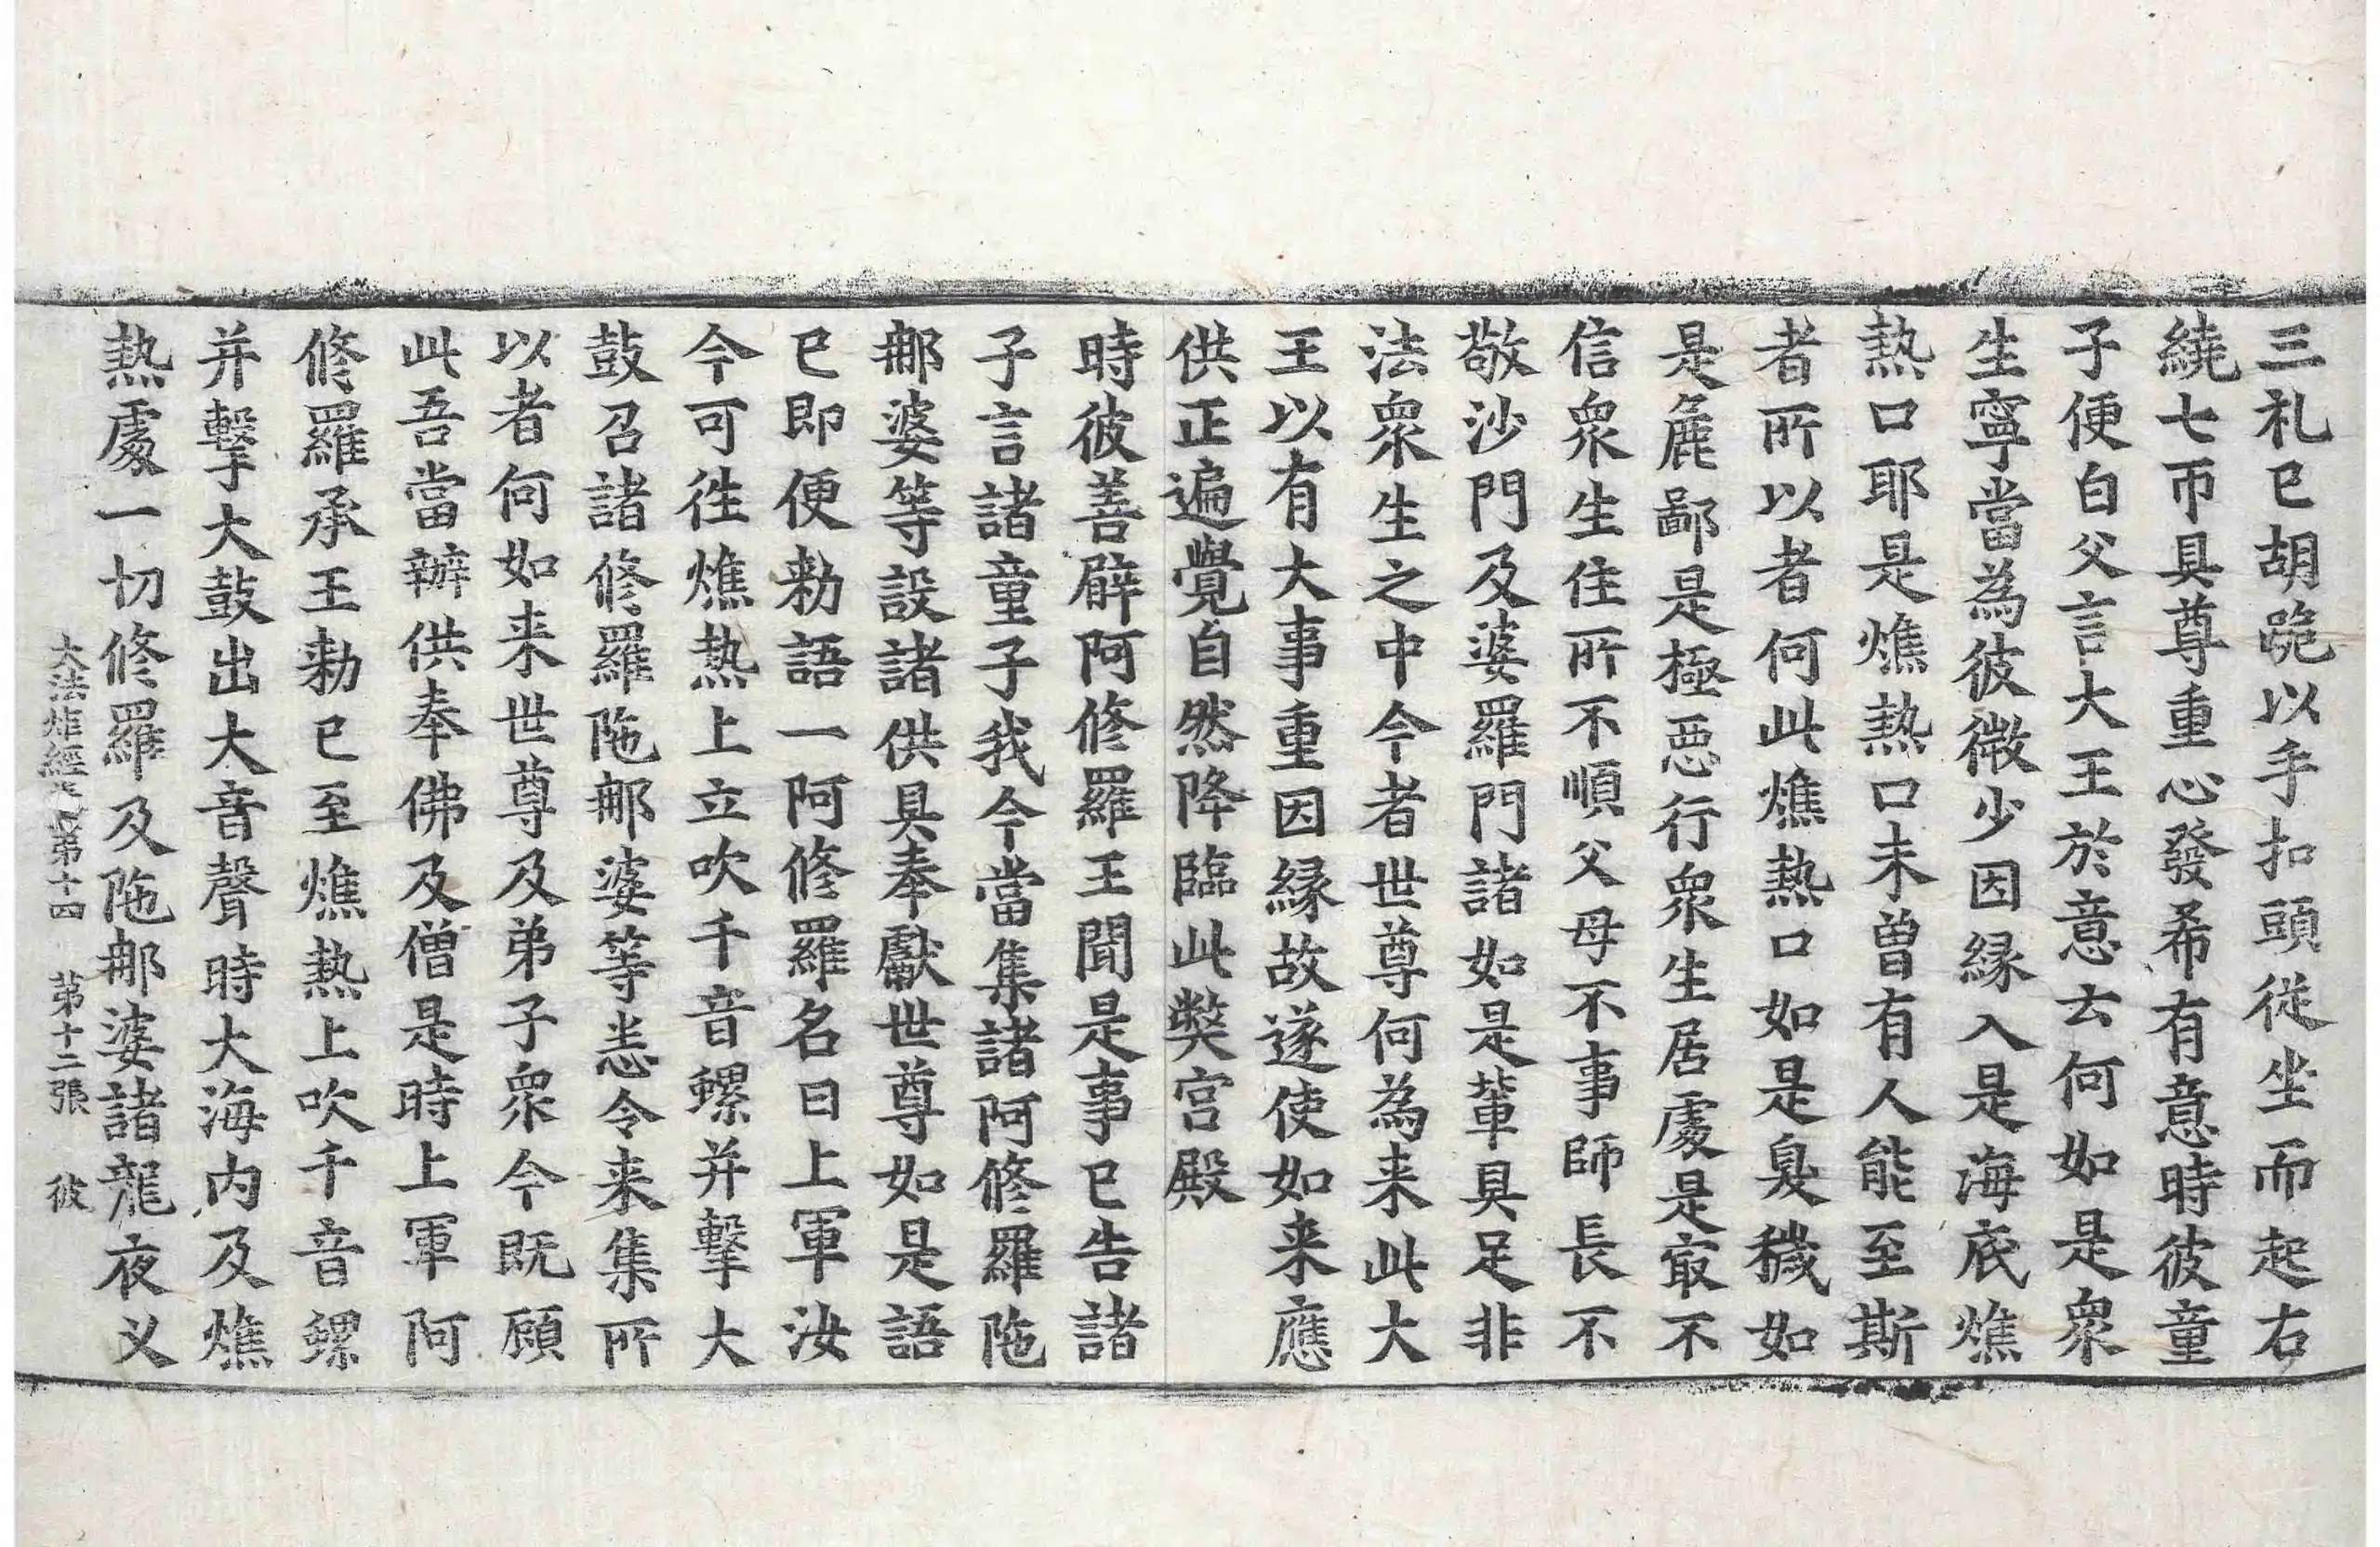 三礼已胡跪以手扣頭従坐而起右
繞七帀具尊重心發希有意時彼童
子便白父言大王於意云何如是衆
生寧當為彼微少因緣入是海底燋
熱口耶是燋熱口未曾有人能至斯
者所以者何此燋熱口如是臭穢如
是麁鄙是極惡行衆生居處是冣不
信衆生住所不順父母不事師長不
敬沙門及婆羅門諸如是輩具足非
法衆生之中今者世尊何為来此大
王以有大事重因緣故遂使如来應
供正遍覺自然降臨此弊宮殿
時彼善臂阿修羅王聞是事已告諸
子言諸童子我今當集諸阿修羅陁
那婆等設諸供具奉獻世尊如是語
已即便勑語一阿修羅名曰上軍汝
今可徃燋熱上立吹千音螺并擊大
鼓召諸修羅陁那婆等悉令来集所
以者何如来世尊及弟子衆今既顧
此吾當辦供奉佛及僧是時上軍阿
修羅承王勑已至燋熱上吹千音螺
并擊大鼓出大音聲時大海内及燋
熱處一切修羅及陁那婆諸龍夜叉
大法炬經卷第十四 第十二張 彼